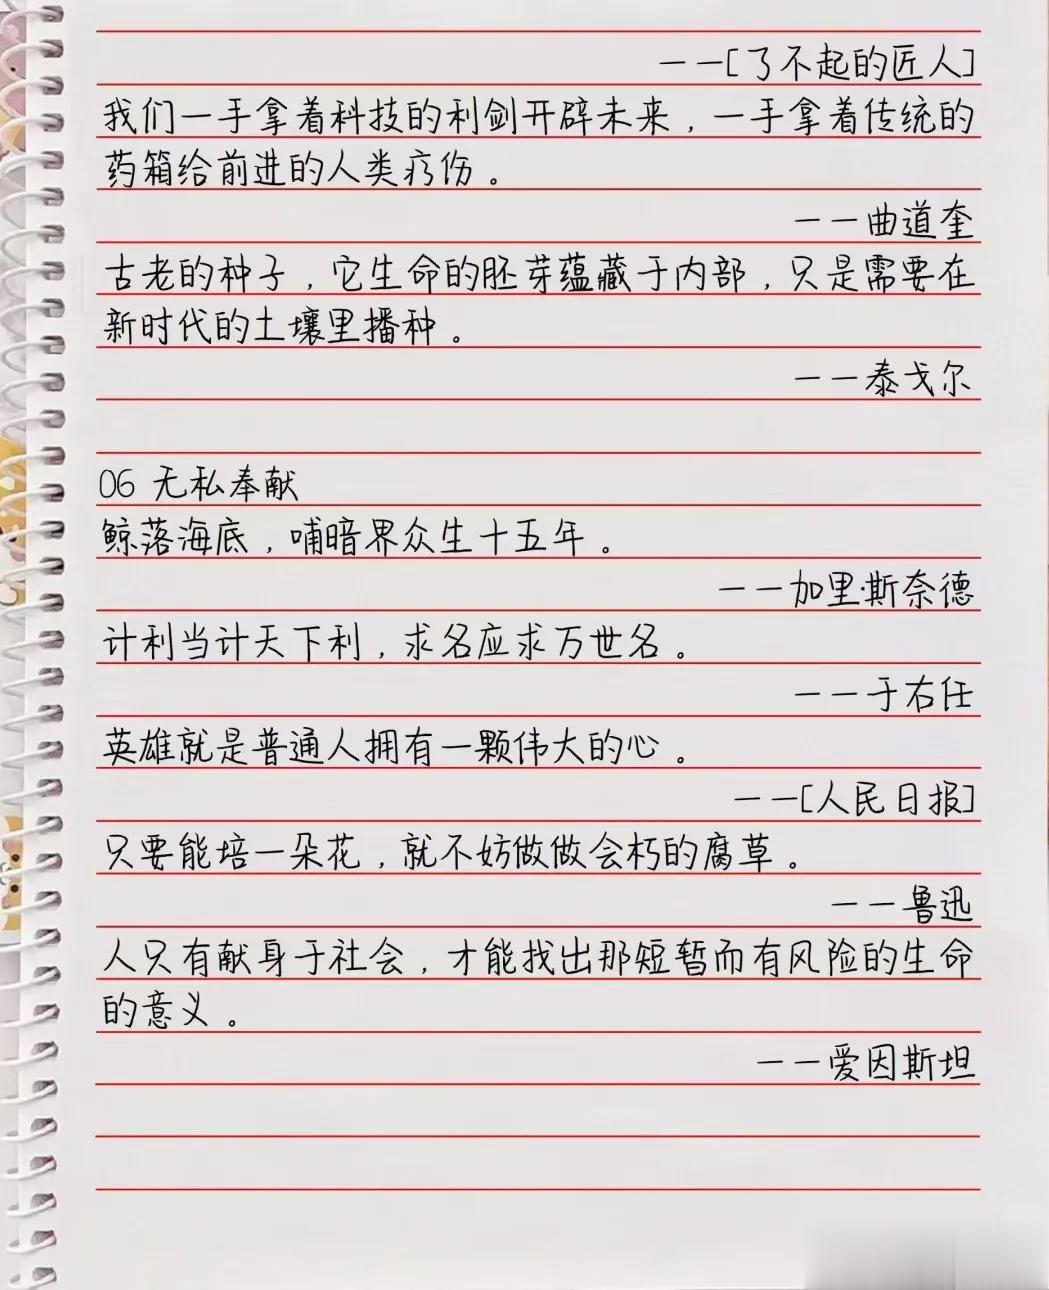 ——[了不起的匠人]
我们一手拿着科技的利剑开辟未来，一手拿着传统的
药箱给前进的人类疗伤。
——曲道奎
古老的种子，它生命的胚芽蕴藏于内部，只是需要在
新时代的土壤里播种。
——泰戈尔
06 无私奉献
鲸落海底，哺暗界众生十五年。
——加里·斯奈德
计利当计天下利，求名应求万世名。
——于右任
英雄就是普通人拥有一颗伟大的心。
——[人民日报]
只要能培一朵花，就不妨做做会朽的腐草。
——鲁迅
人只有献身于社会，才能找出那短暂而有风险的生命
的意义。
——爱因斯坦